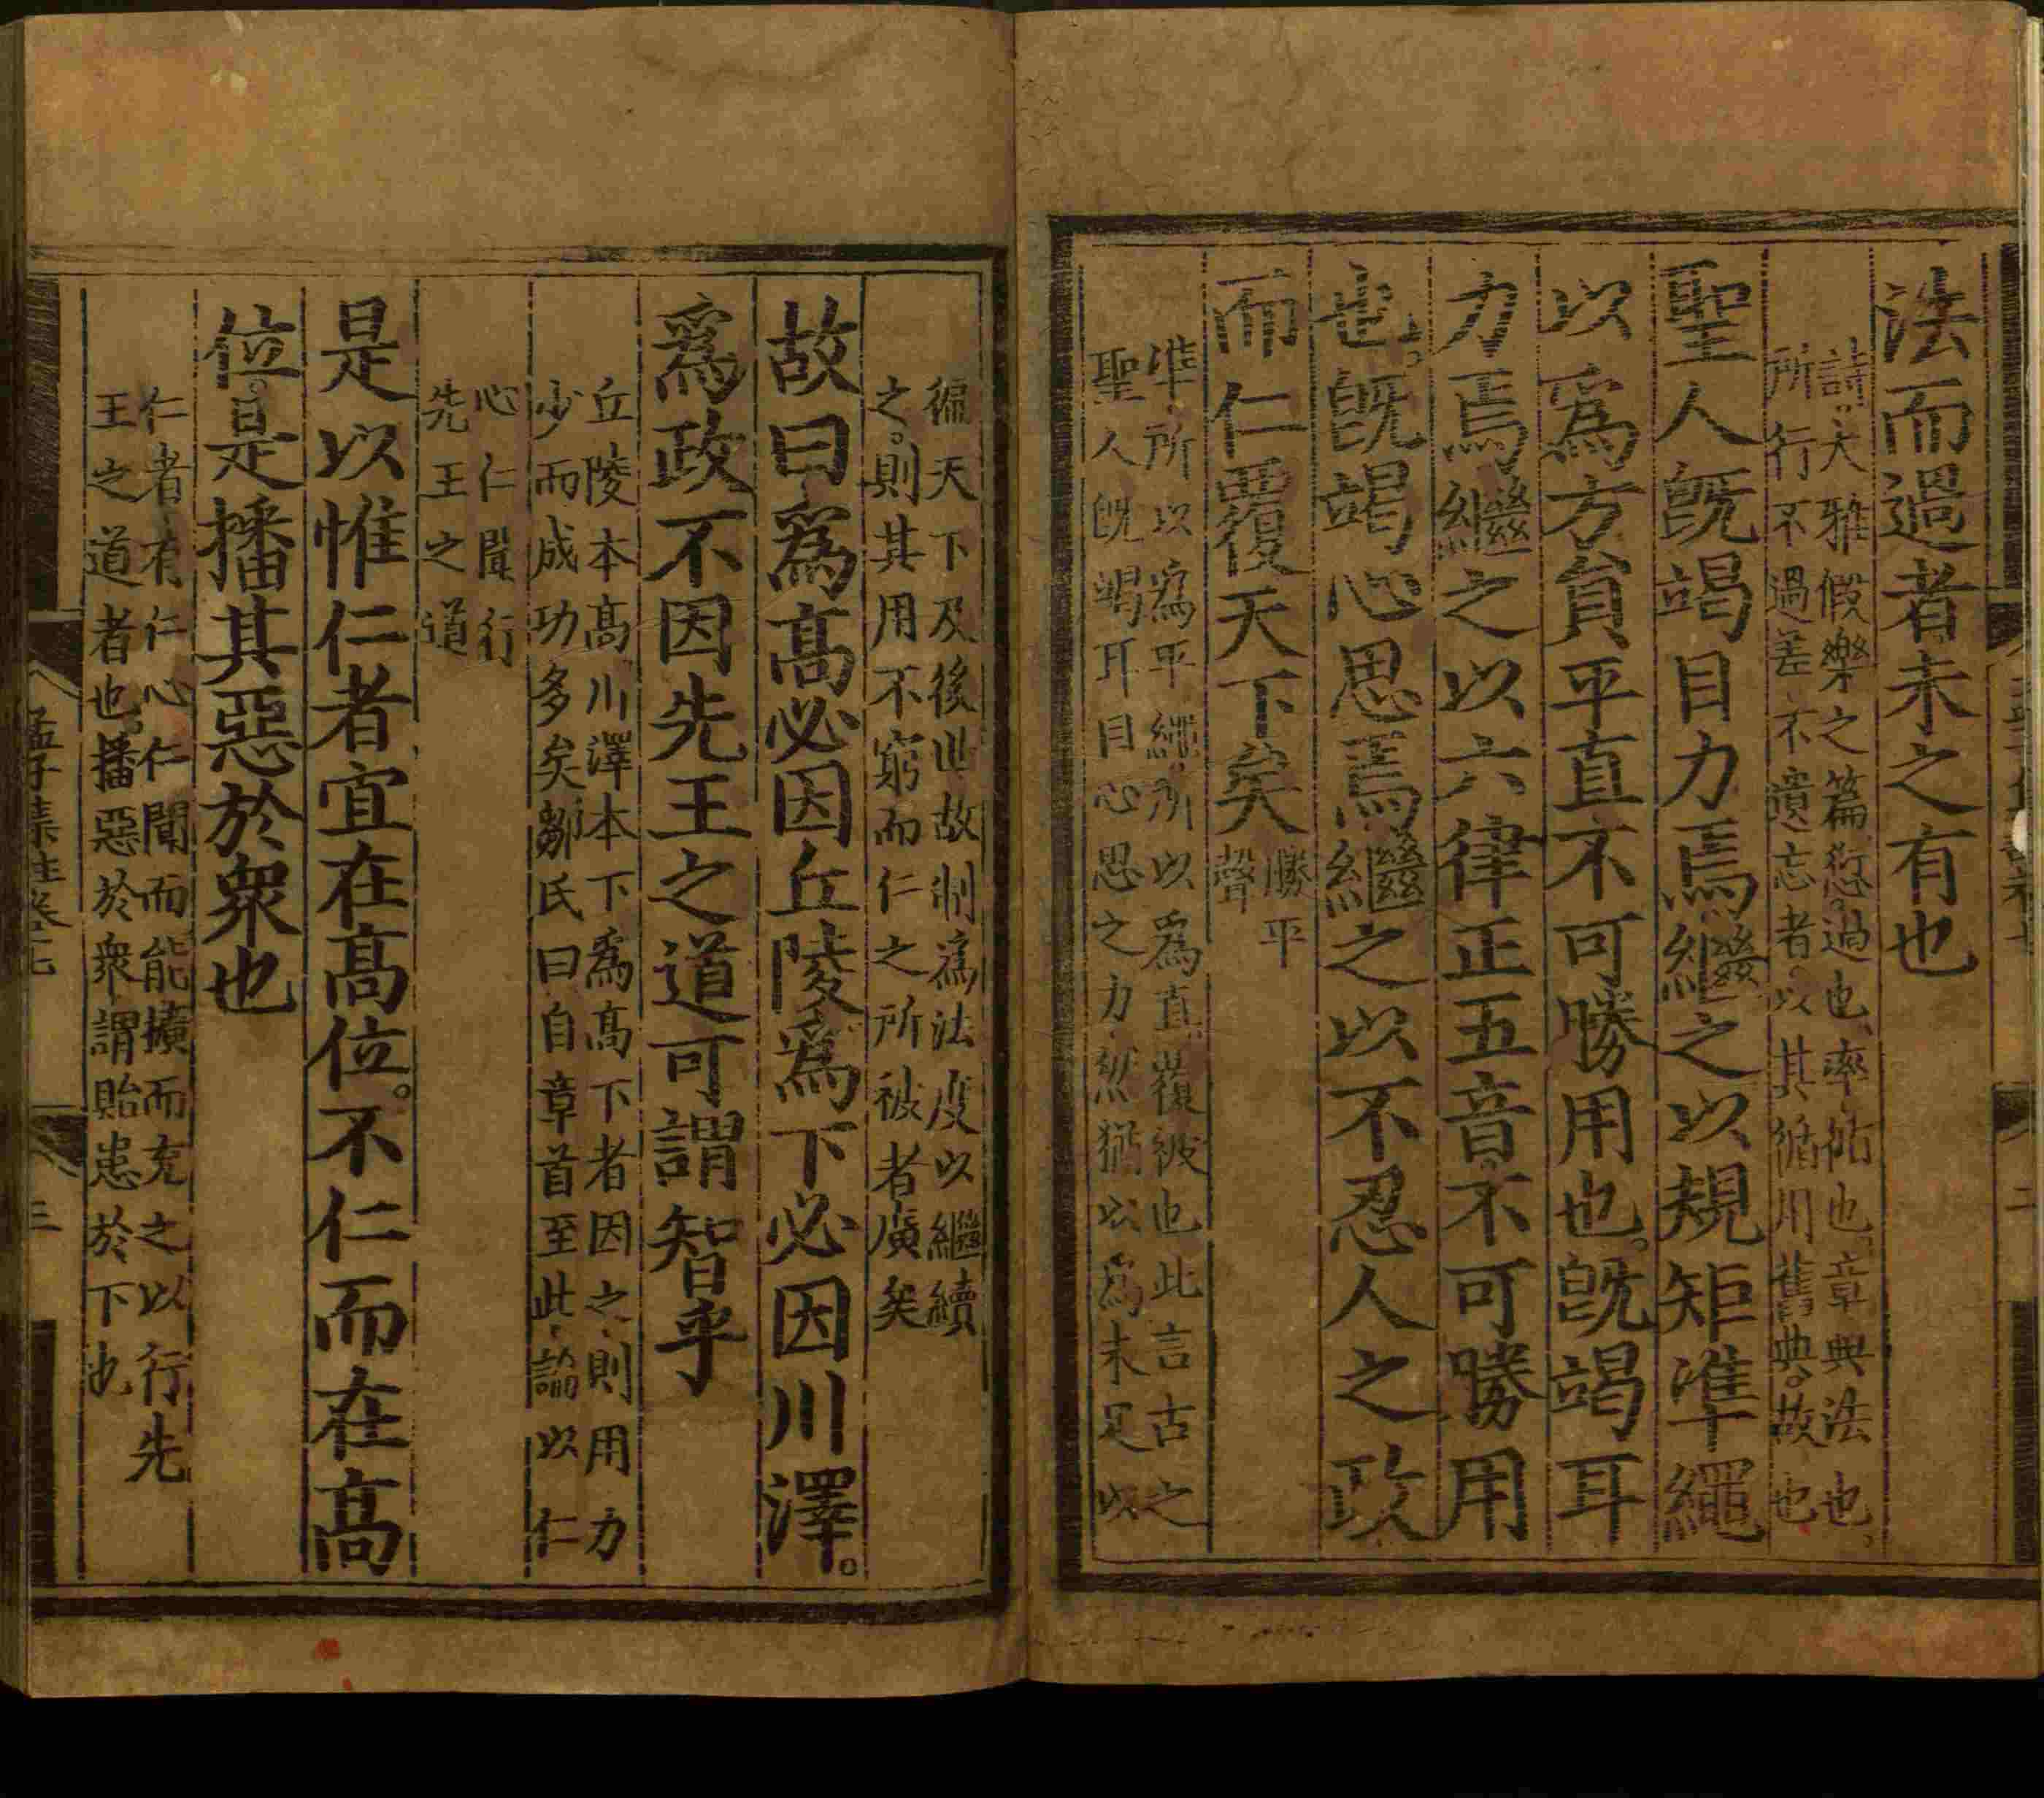 法而過者未之有也
詩大雅假樂之篇愆過也率循也章典法也
所行不過差不遺忘者以其循用舊典故也
聖人旣竭目力焉繼之以規矩準繩
以爲方員平直不可勝用也旣竭耳
力焉繼之以六律正五音不可勝用
也旣竭心思焉繼之以不忍人之政
而仁覆天下矣
勝平
聲
準所以爲平繩所以爲直覆被也此言古之
聖人旣竭耳目心思之力然猶以爲未足以
徧天下及後世故制爲法度以繼續
之則其用不窮而仁之所被者廣矣
故曰爲高必因丘陵爲下必因川澤
爲政不因先王之道可謂智乎
丘陵本高川澤本下爲高下者因之則用力
少而成功多矣鄒氏曰自章首至此論以仁
心仁聞行
先王之道
是以惟仁者宜在高位不仁而在高
位是播其惡於衆也
仁者有仁心仁聞而能擴而充之以行先
王之道者也播惡於衆謂貽患於下也
孟子集註卷七
三